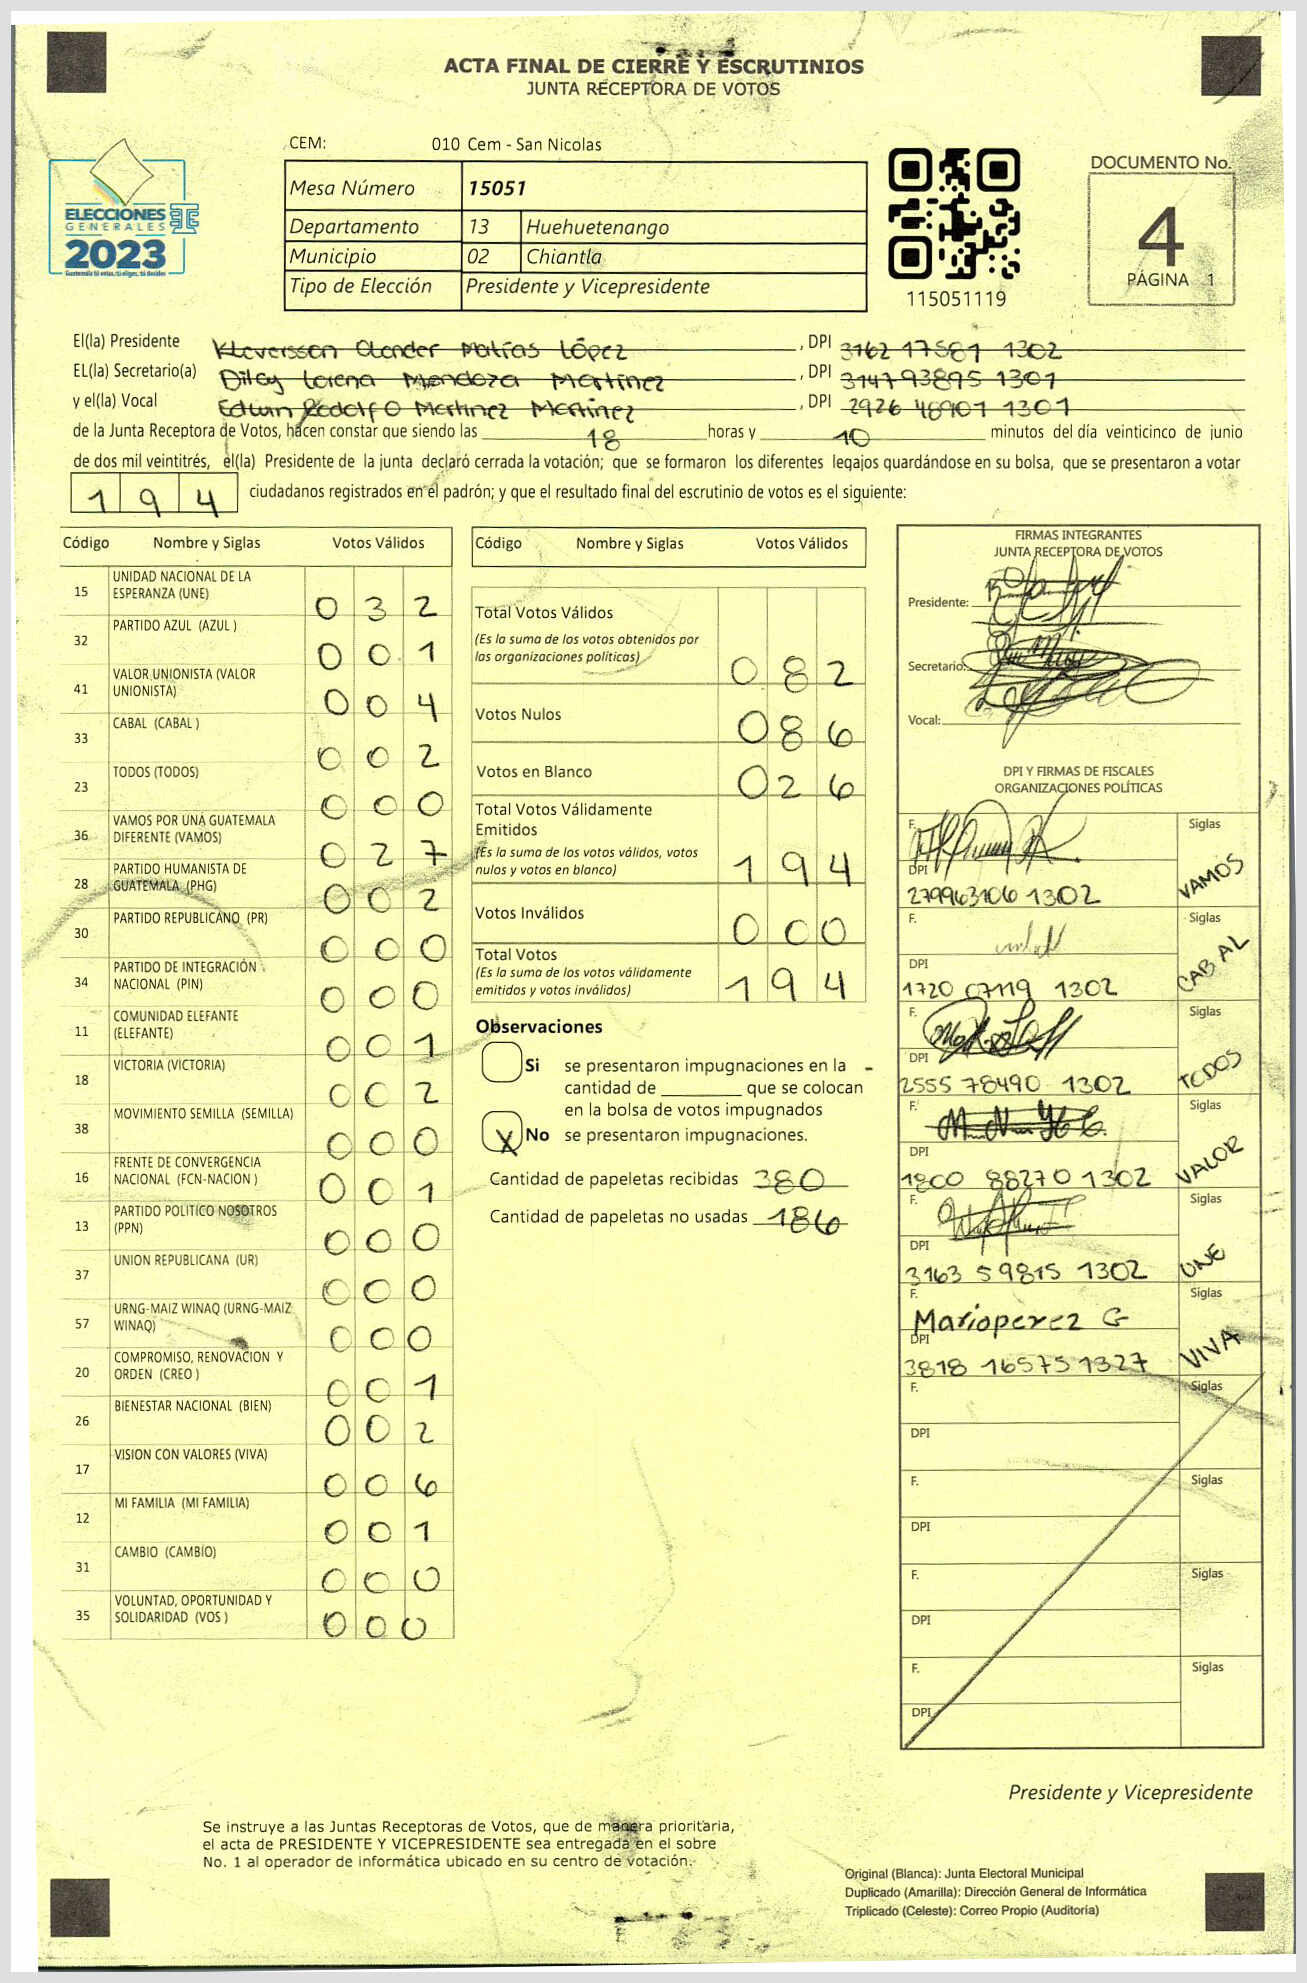 ACTA FINAL DE CIERRE Y ESCRUTINIOS
JUNTA RECEPTORA DE VOTOS
CEM: 010 Cem - San Nicolas
ELECCIONES
GENERALES
2023
Guatemala tú votas, tú eliges, tú decides
Mesa Número 15051
Departamento 13 Huehuetenango
Municipio 02 Chiantla
Tipo de Elección Presidente y Vicepresidente
115051119
DOCUMENTO No.
4
PÁGINA 1
El(la) Presidente Kleversson Olander Matías López, DPI 3162 17581 1302
EL(la) Secretario(a) Dilcy Lorena Mendoza Martinez, DPI 3147 93895 1301
y el(la) Vocal Edwin Rodolfo Martinez Martinez, DPI 2926 48901 1301
de la Junta Receptora de Votos, hacen constar que siendo las 18 horas y 10 minutos del día veinticinco de junio
de dos mil veintitrés, el(la) Presidente de la junta declaró cerrada la votación; que se formaron los diferentes legajos guardándose en su bolsa, que se presentaron a votar
194 ciudadanos registrados en el padrón; y que el resultado final del escrutinio de votos es el siguiente:
Código Nombre y Siglas Votos Válidos
15 UNIDAD NACIONAL DE LA ESPERANZA (UNE) 032
32 PARTIDO AZUL (AZUL ) 001
41 VALOR UNIONISTA (VALOR UNIONISTA) 004
33 CABAL (CABAL ) 002
23 TODOS (TODOS) 000
36 VAMOS POR UNA GUATEMALA DIFERENTE (VAMOS) 027
28 PARTIDO HUMANISTA DE GUATEMALA (PHG) 002
30 PARTIDO REPUBLICANO (PR) 000
34 PARTIDO DE INTEGRACIÓN NACIONAL (PIN) 000
11 COMUNIDAD ELEFANTE (ELEFANTE) 001
18 VICTORIA (VICTORIA) 002
38 MOVIMIENTO SEMILLA (SEMILLA) 000
16 FRENTE DE CONVERGENCIA NACIONAL (FCN-NACION ) 001
13 PARTIDO POLITICO NOSOTROS (PPN) 000
37 UNION REPUBLICANA (UR) 000
57 URNG-MAIZ WINAQ (URNG-MAIZ WINAQ) 000
20 COMPROMISO, RENOVACION Y ORDEN (CREO ) 001
26 BIENESTAR NACIONAL (BIEN) 002
17 VISION CON VALORES (VIVA) 006
12 MI FAMILIA (MI FAMILIA) 001
31 CAMBIO (CAMBIO) 000
35 VOLUNTAD, OPORTUNIDAD Y SOLIDARIDAD (VOS ) 000
Código Nombre y Siglas Votos Válidos
Total Votos Válidos 082
(Es la suma de los votos obtenidos por las organizaciones políticas)
Votos Nulos 086
Votos en Blanco 026
Total Votos Válidamente Emitidos 194
(Es la suma de los votos válidos, votos nulos y votos en blanco)
Votos Inválidos 000
Total Votos 194
(Es la suma de los votos válidamente emitidos y votos inválidos)
Observaciones
Si se presentaron impugnaciones en la
cantidad de ________ que se colocan
en la bolsa de votos impugnados
X No se presentaron impugnaciones.
Cantidad de papeletas recibidas 380
Cantidad de papeletas no usadas 186
FIRMAS INTEGRANTES
JUNTA RECEPTORA DE VOTOS
Presidente:
Secretario:
Vocal:
DPI Y FIRMAS DE FISCALES
ORGANIZACIONES POLÍTICAS
F. Siglas VAMOS
DPI 279963106 1302
F. Siglas CABAL
DPI 1720 07119 1302
F. Siglas TODOS
DPI 2555 78490 1302
F. Siglas VALOR
DPI 1800 88270 1302
F. Siglas UNE
DPI 3163 59815 1302
F. Marioperez G Siglas VIVA
DPI 3818 16575 1327
F. Siglas
DPI
F. Siglas
DPI
F. Siglas
DPI
F. Siglas
DPI
Presidente y Vicepresidente
Se instruye a las Juntas Receptoras de Votos, que de manera prioritaria,
el acta de PRESIDENTE Y VICEPRESIDENTE sea entregada en el sobre
No. 1 al operador de informática ubicado en su centro de votación.
Original (Blanca): Junta Electoral Municipal
Duplicado (Amarilla): Dirección General de Informática
Triplicado (Celeste): Correo Propio (Auditoría)